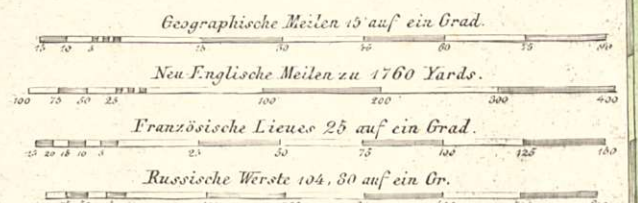 Geographische Meilen 15 auf ein Grad.
15 10 5 15 30 45 60 75 90
Neu Englische Meilen zu 1760 Yards.
100 75 50 25 100 200 300 400
Französische Lieues 25 auf ein Grad.
25 20 15 10 5 25 50 75 100 125 150
Russische Werste 104,30 auf ein Gr.